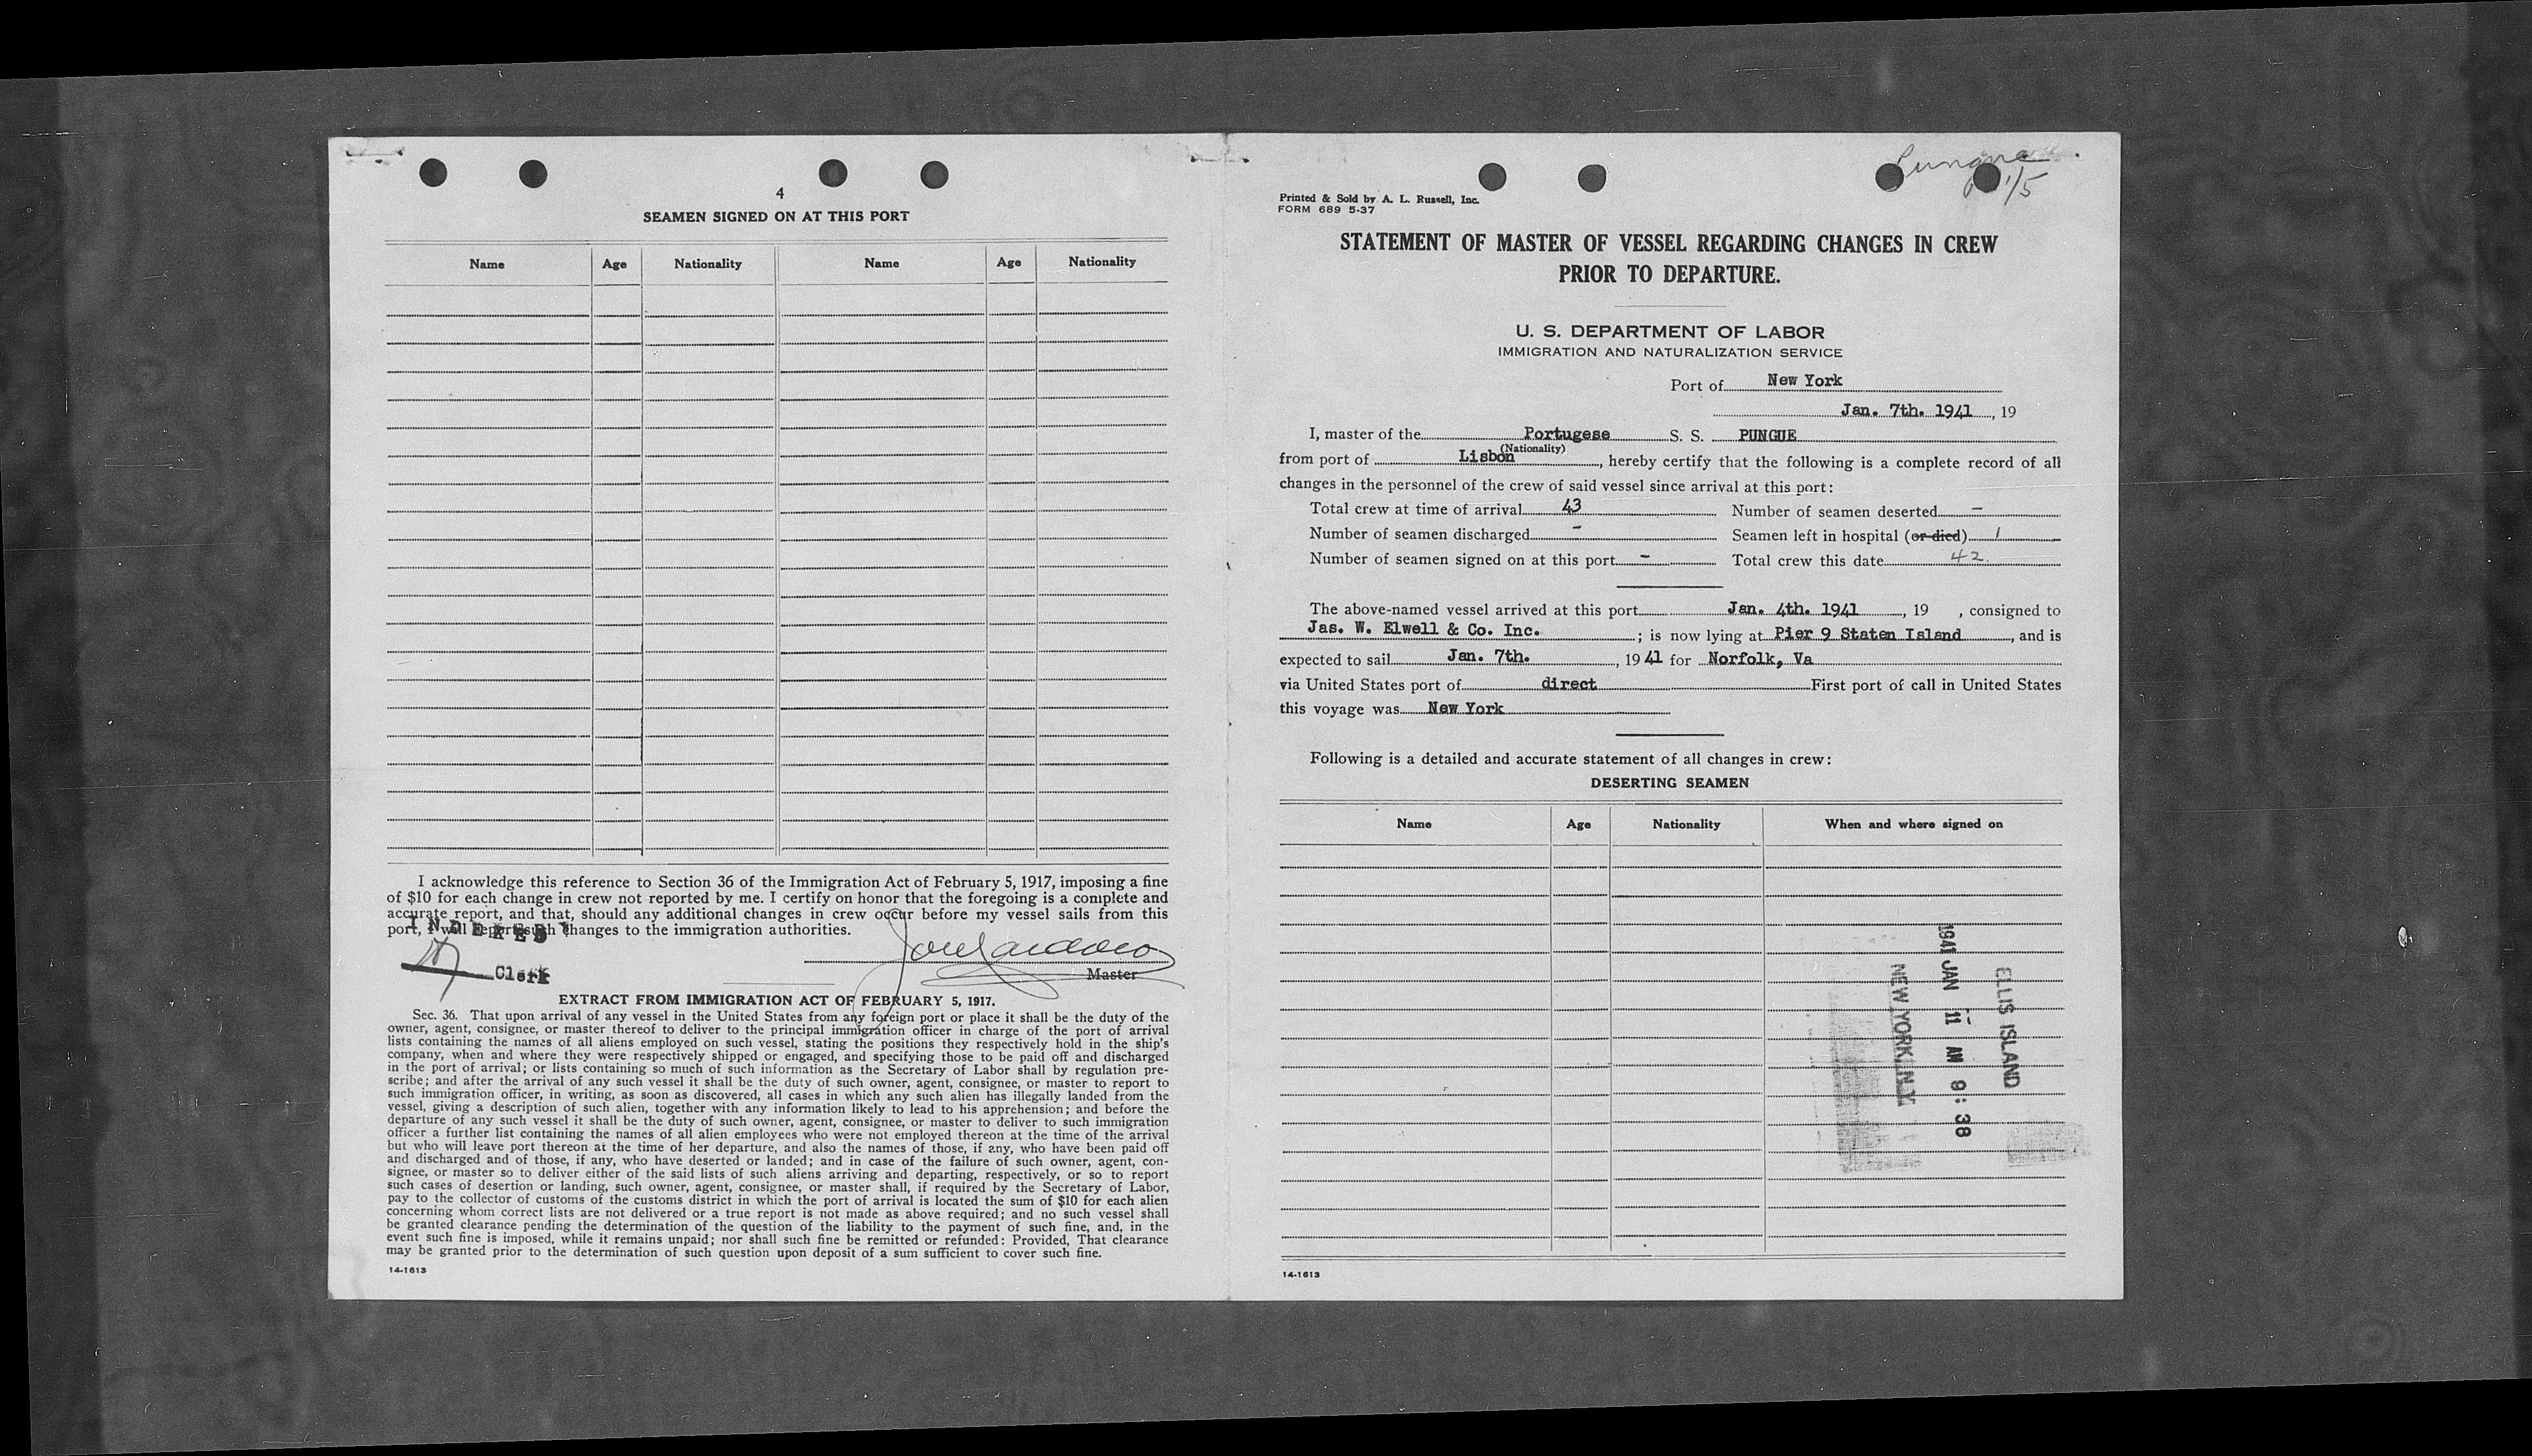 4
SEAMEN SIGNED ON AT THIS PORT
Name Age Nationality Name Age Nationality
I acknowledge this reference to Section 36 of the Immigration Act of February 5, 1917, imposing a fine
of $10 for each change in crew not reported by me. I certify on honor that the foregoing is a complete and
accurate report, and that, should any additional changes in crew occur before my vessel sails from this
port, I will report such changes to the immigration authorities.
INDEXED
Clerk
Master
EXTRACT FROM IMMIGRATION ACT OF FEBRUARY 5, 1917.
Sec. 36. That upon arrival of any vessel in the United States from any foreign port or place it shall be the duty of the
owner, agent, consignee, or master thereof to deliver to the principal immigration officer in charge of the port of arrival
lists containing the names of all aliens employed on such vessel, stating the positions they respectively hold in the ship's
company, when and where they were respectively shipped or engaged, and specifying those to be paid off and discharged
in the port of arrival; or lists containing so much of such information as the Secretary of Labor shall by regulation pre-
scribe; and after the arrival of any such vessel it shall be the duty of such owner, agent, consignee, or master to report to
such immigration officer, in writing, as soon as discovered, all cases in which any such alien has illegally landed from the
vessel, giving a description of such alien, together with any information likely to lead to his apprehension; and before the
departure of any such vessel it shall be the duty of such owner, agent, consignee, or master to deliver to such immigration
officer a further list containing the names of all alien employees who were not employed thereon at the time of the arrival
but who will leave port thereon at the time of her departure, and also the names of those, if any, who have been paid off
and discharged and of those, if any, who have deserted or landed; and in case of the failure of such owner, agent, con-
signee, or master so to deliver either of the said lists of such aliens arriving and departing, respectively, or so to report
such cases of desertion or landing, such owner, agent, consignee, or master shall, if required by the Secretary of Labor,
pay to the collector of customs of the customs district in which the port of arrival is located the sum of $10 for each alien
concerning whom correct lists are not delivered or a true report is not made as above required; and no such vessel shall
be granted clearance pending the determination of the question of the liability to the payment of such fine, and, in the
event such fine is imposed, while it remains unpaid; nor shall such fine be remitted or refunded: Provided, That clearance
may be granted prior to the determination of such question upon deposit of a sum sufficient to cover such fine.
14-1613
Pungue
1/5
Printed & Sold by A. L. Russell, Inc.
FORM 689 5-37
STATEMENT OF MASTER OF VESSEL REGARDING CHANGES IN CREW
PRIOR TO DEPARTURE.
U. S. DEPARTMENT OF LABOR
IMMIGRATION AND NATURALIZATION SERVICE
Port of New York
Jan. 7th. 1941, 19
I, master of the Portugese S. S. PUNGUE
(Nationality)
from port of Lisbon, hereby certify that the following is a complete record of all
changes in the personnel of the crew of said vessel since arrival at this port:
Total crew at time of arrival 43 Number of seamen deserted -
Number of seamen discharged - Seamen left in hospital (or died) 1
Number of seamen signed on at this port - Total crew this date 42
The above-named vessel arrived at this port Jan. 4th. 1941, 19 , consigned to
Jas. W. Elwell & Co. Inc. ; is now lying at Pier 9 Staten Island, and is
expected to sail Jan. 7th. , 1941 for Norfolk, Va
via United States port of direct First port of call in United States
this voyage was New York
Following is a detailed and accurate statement of all changes in crew:
DESERTING SEAMEN
Name Age Nationality When and where signed on
ELLIS ISLAND
1941 JAN 11 AM 9:38
NEW YORK, N.Y.
14-1613